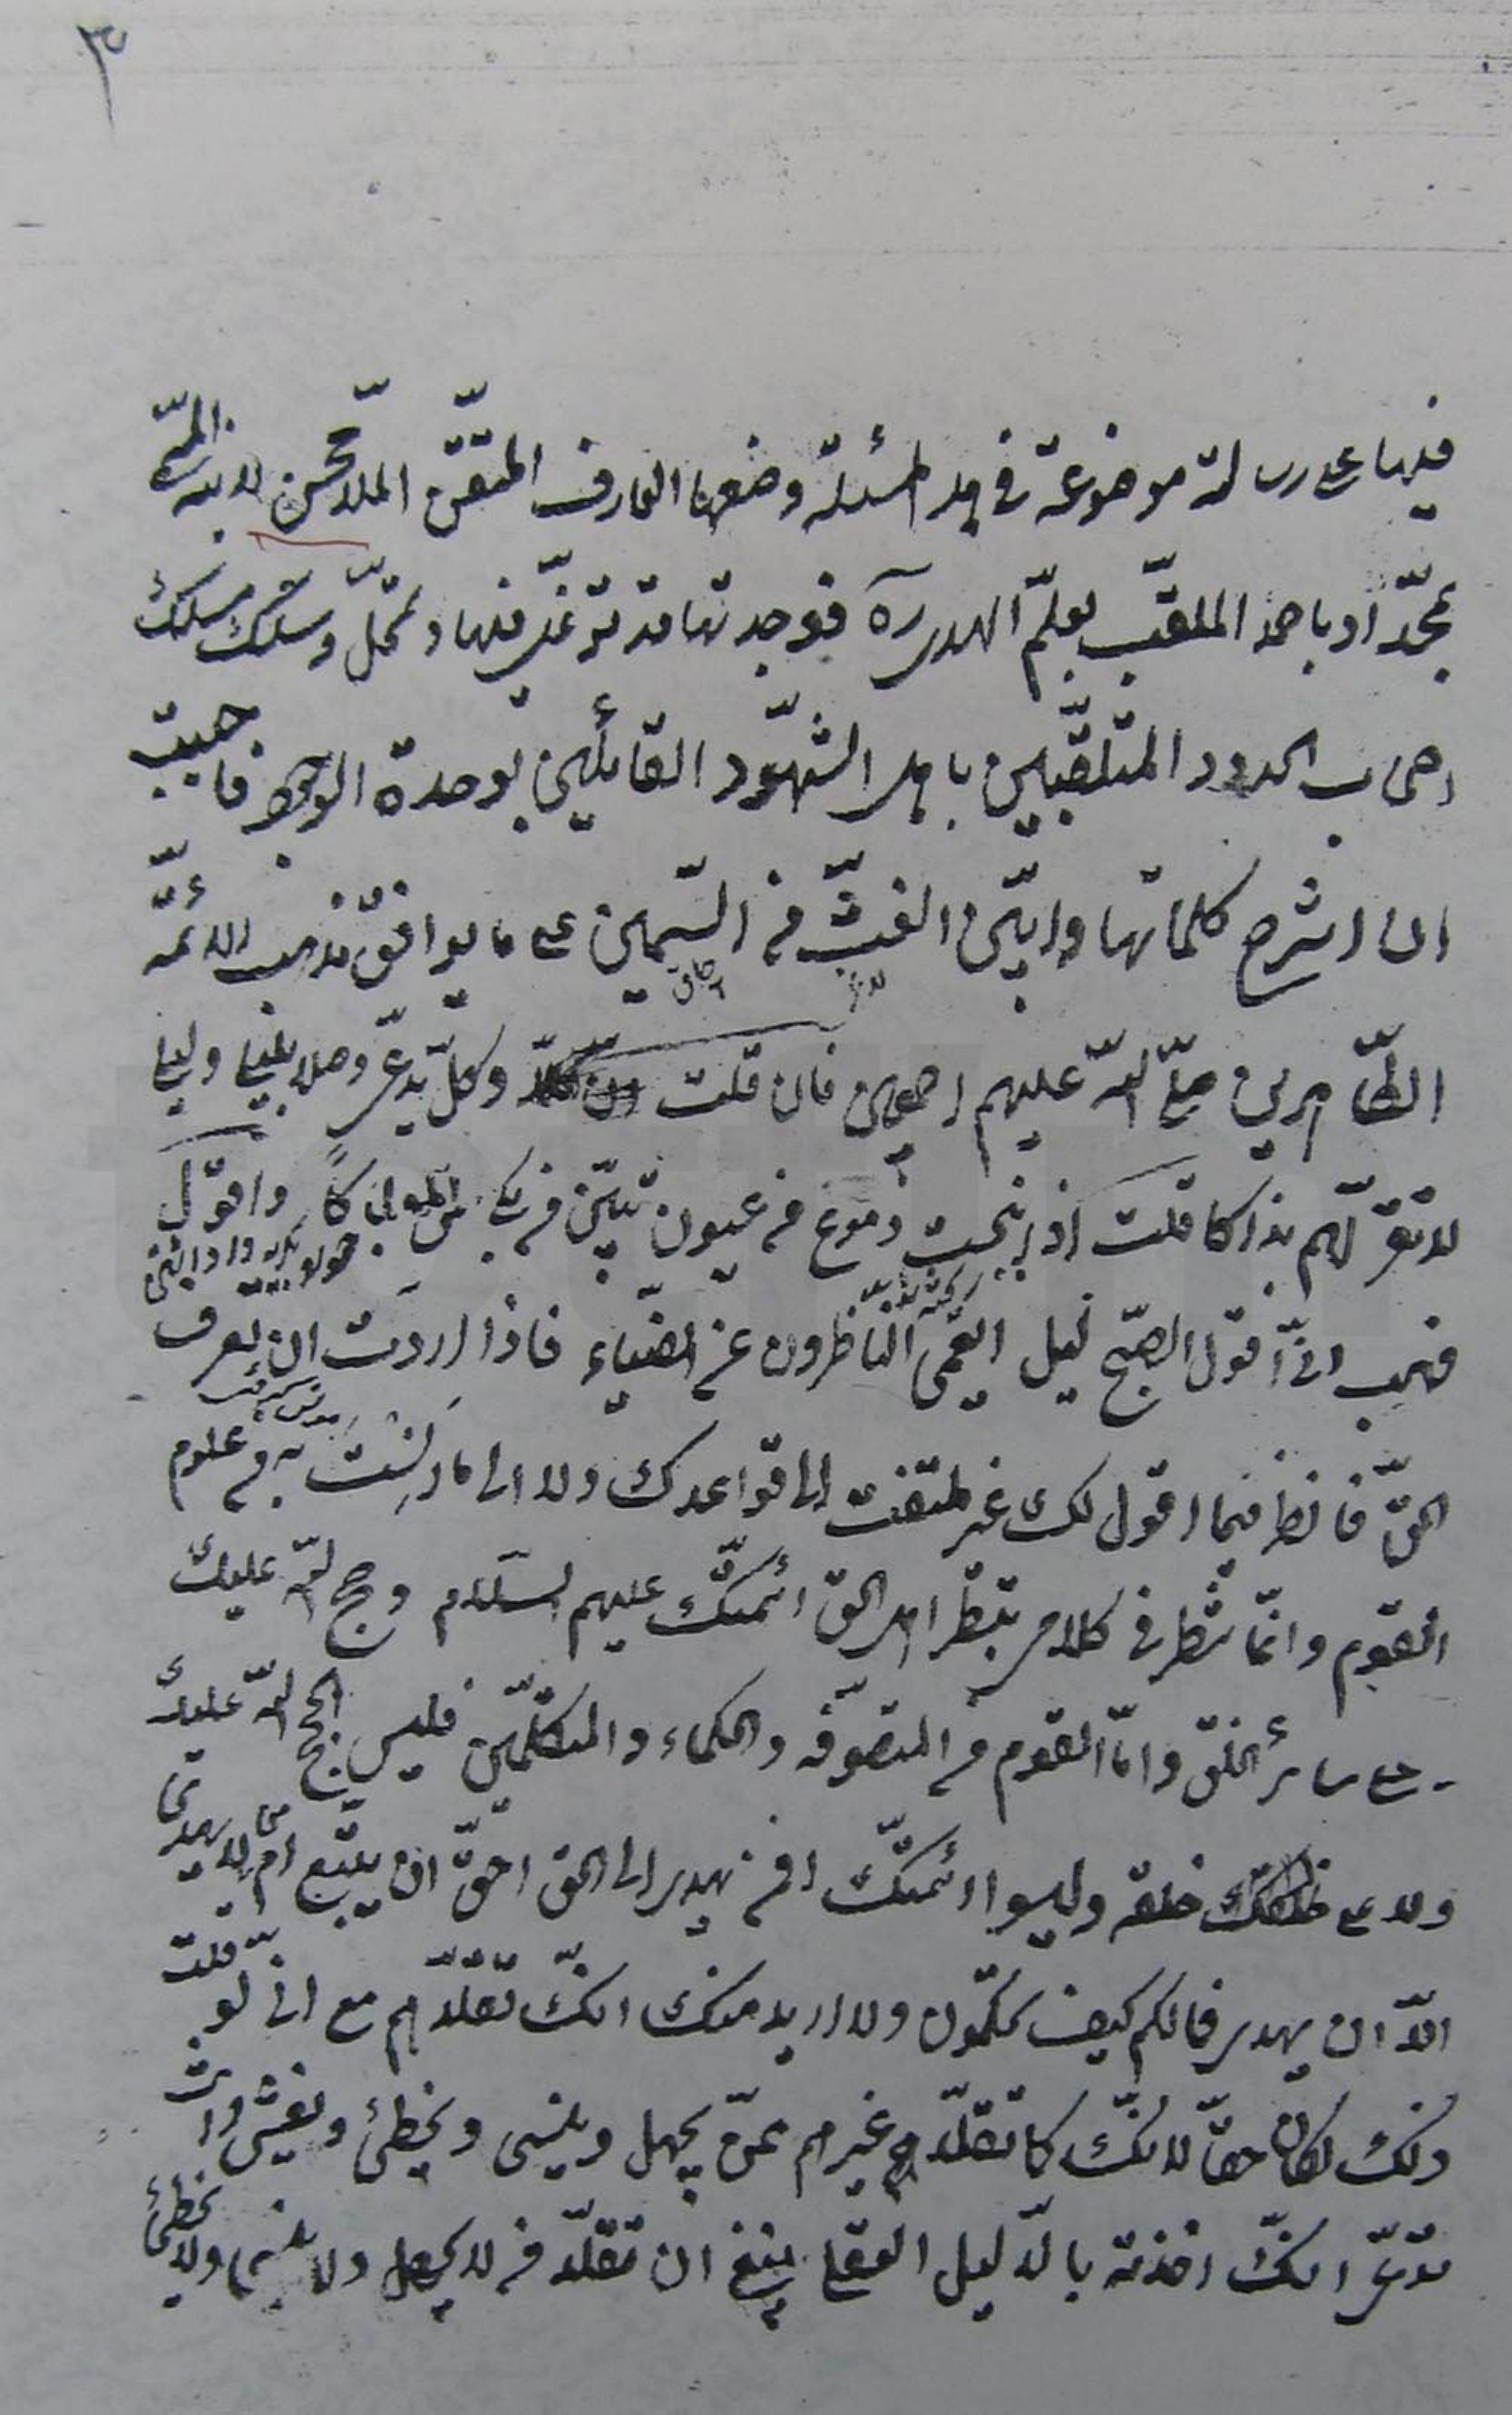 ٣
فيها على رسالة موضوعة في هذه المسئلة وضعها العارف المتقن الملا محسن لابنه المسمى
بمحمد او باحمد الملقب بعلم الهدى ره فوجدتها قد توغل فيها وتمحل وسلك مسلك
اصحاب الحدود المتلقبين باهل الشهود القائلين بوحدة الوجود فاحببت
ان اشرح كلماتها وابين الغث من السمين على ما يوافق مذهب الائمة
الطاهرين صلى الله عليهم اجمعين فان قلت وكل يدعي وصلا بليلى وليلى
لا تقر لهم بذاكا قلت اذا انبجست دموع من عيون تبين من بكى ممن تباكى واقول
فهب اني اقول الصبح ليل ايعمى الناظرون عن الضياء فاذا اردت ان تعرف
الحق فانظر فيما اقول لك غير ملتفت الى قواعدك ولا الى ما انست به من علوم
القوم وانما تنظر في كلامي بنظر اهل الحق ائمتك عليهم السلام وحجج الله عليك
وعلى سائر الخلق واما القوم من المتصوفه والحكماء والمتكلمين فليس بحجج الله عليك
ولا على خلقه وليسوا ائمتك افمن يهدي الى الحق احق ان يتبع امن لا يهدي
الا ان يهدى فما لكم كيف تحكمون ولا اريد منك انك تقلدهم مع اني لو قلت
ذلك لكان حقا لانك كما تقلد غيرهم ممن يجهل وينسى ويخطئ ويغش وانت
تدعي انك اخذته بالدليل العقلي ينبغي ان تقلد من لا يجهل ولا ينسى ولا يخطئ